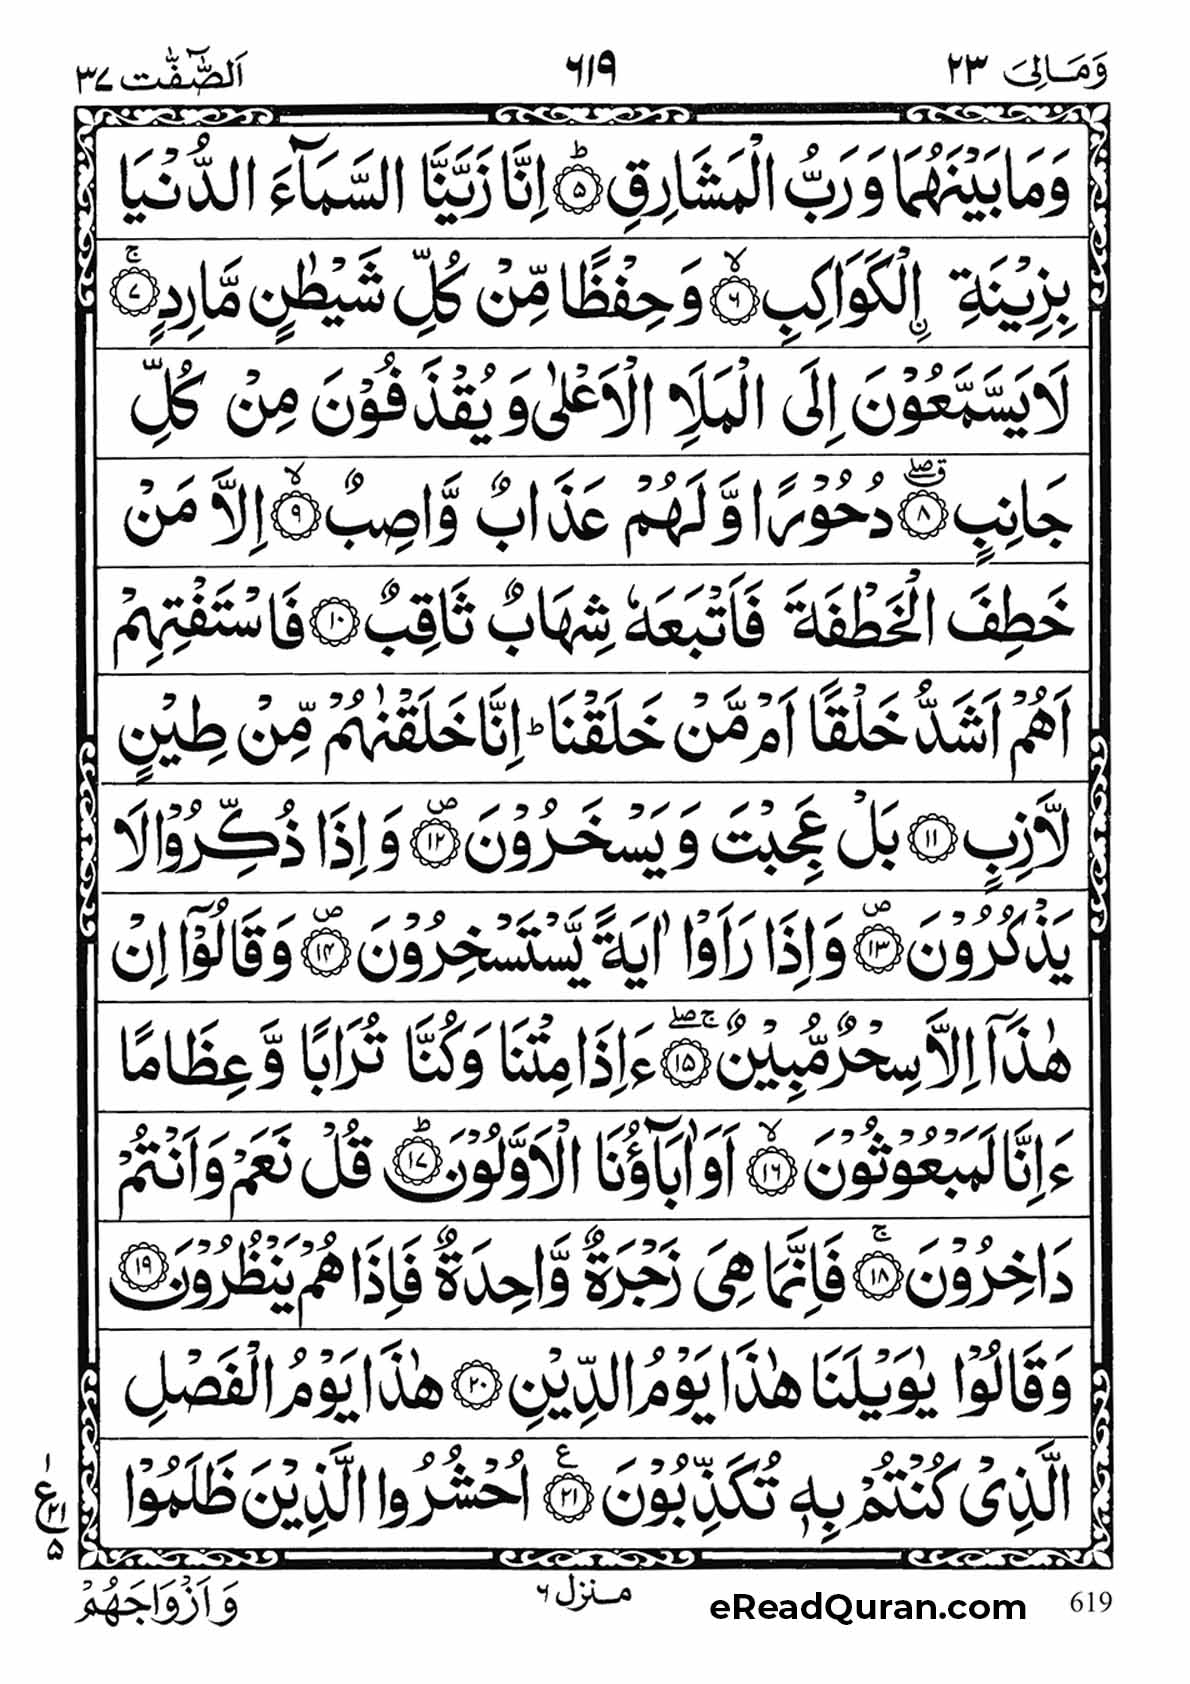 وَمَالِىَ ٢٣
٦١٩
اَلصّٰٓفّٰت ٣٧
وَمَا بَيْنَهُمَا وَرَبُّ الْمَشَارِقِؕ ۝۵ اِنَّا زَيَّنَّا السَّمَآءَ الدُّنْيَا
بِزِيْنَةِ ۨالْكَوَاكِبِۙ ۝۶ وَحِفْظًا مِّنْ كُلِّ شَيْطٰنٍ مَّارِدٍۚ ۝۷
لَا يَسَّمَّعُوْنَ اِلَى الْمَلَاِ الْاَعْلٰى وَيُقْذَفُوْنَ مِنْ كُلِّ
جَانِبٍۗۖ ۝۸ دُحُوْرًا وَّلَهُمْ عَذَابٌ وَّاصِبٌۙ ۝۹ اِلَّا مَنْ
خَطِفَ الْخَطْفَةَ فَاَتْبَعَهٗ شِهَابٌ ثَاقِبٌ ۝۱۰ فَاسْتَفْتِهِمْ
اَهُمْ اَشَدُّ خَلْقًا اَمْ مَّنْ خَلَقْنَاؕ اِنَّا خَلَقْنٰهُمْ مِّنْ طِيْنٍ
لَّازِبٍ ۝۱۱ بَلْ عَجِبْتَ وَيَسْخَرُوْنَ۪ ۝۱۲ وَاِذَا ذُكِّرُوْا لَا
يَذْكُرُوْنَ۪ ۝۱۳ وَاِذَا رَاَوْا اٰيَةً يَّسْتَسْخِرُوْنَ۪ ۝۱۴ وَقَالُوْۤا اِنْ
هٰذَاۤ اِلَّا سِحْرٌ مُّبِيْنٌۚۖ ۝۱۵ ءَاِذَا مِتْنَا وَكُنَّا تُرَابًا وَّعِظَامًا
ءَاِنَّا لَمَبْعُوْثُوْنَۙ ۝۱۶ اَوَاٰبَآؤُنَا الْاَوَّلُوْنَؕ ۝۱۷ قُلْ نَعَمْ وَاَنْتُمْ
دَاخِرُوْنَۚ ۝۱۸ فَاِنَّمَا هِىَ زَجْرَةٌ وَّاحِدَةٌ فَاِذَا هُمْ يَنْظُرُوْنَ ۝۱۹
وَقَالُوْا يٰوَيْلَنَا هٰذَا يَوْمُ الدِّيْنِ ۝۲۰ هٰذَا يَوْمُ الْفَصْلِ
الَّذِىْ كُنْتُمْ بِهٖ تُكَذِّبُوْنَ ۝۲۱ ع اُحْشُرُوا الَّذِيْنَ ظَلَمُوْا
١
ع ٢١
۵
وَاَزْوَاجَهُمْ
منزل ٦
eReadQuran.com
619